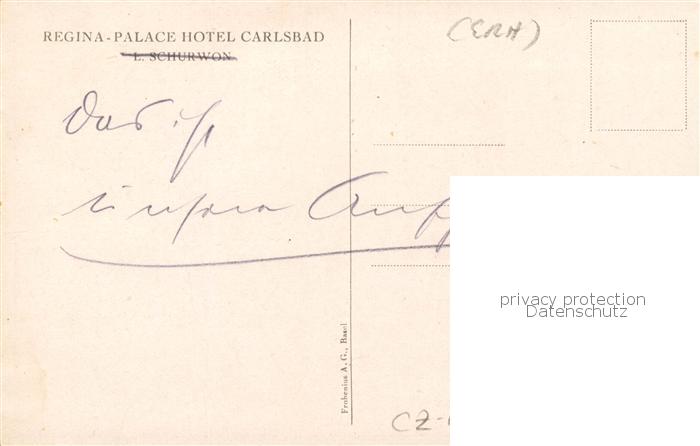 REGINA-PALACE HOTEL CARLSBAD
L. SCHURWON
(ERH)
Das ist
unsere
Frobenius A. G., Basel
privacy protection
Datenschutz
CZ-